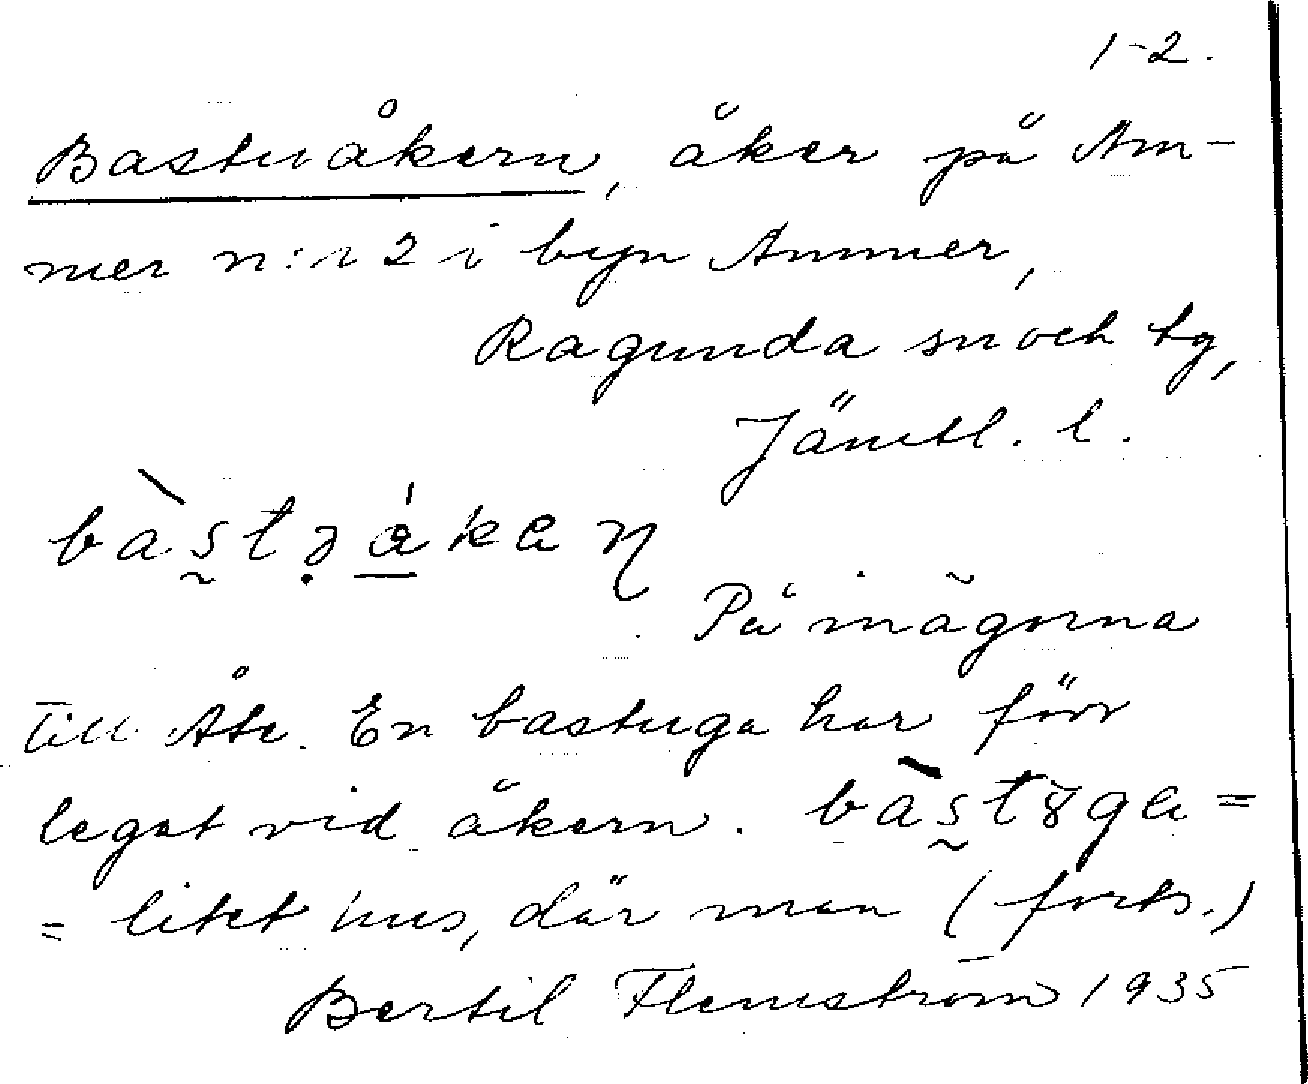 1-2.
Bastuåkern, åker på Am-
mer n:r 2 i byn Ammer,
Ragunda sn och tg,
Jämtl. l.
På inägorna
till Åte. En bastuga har förr
legat vid åkern.
= litet hus, där man (forts.)
Bertil Flemström 1935